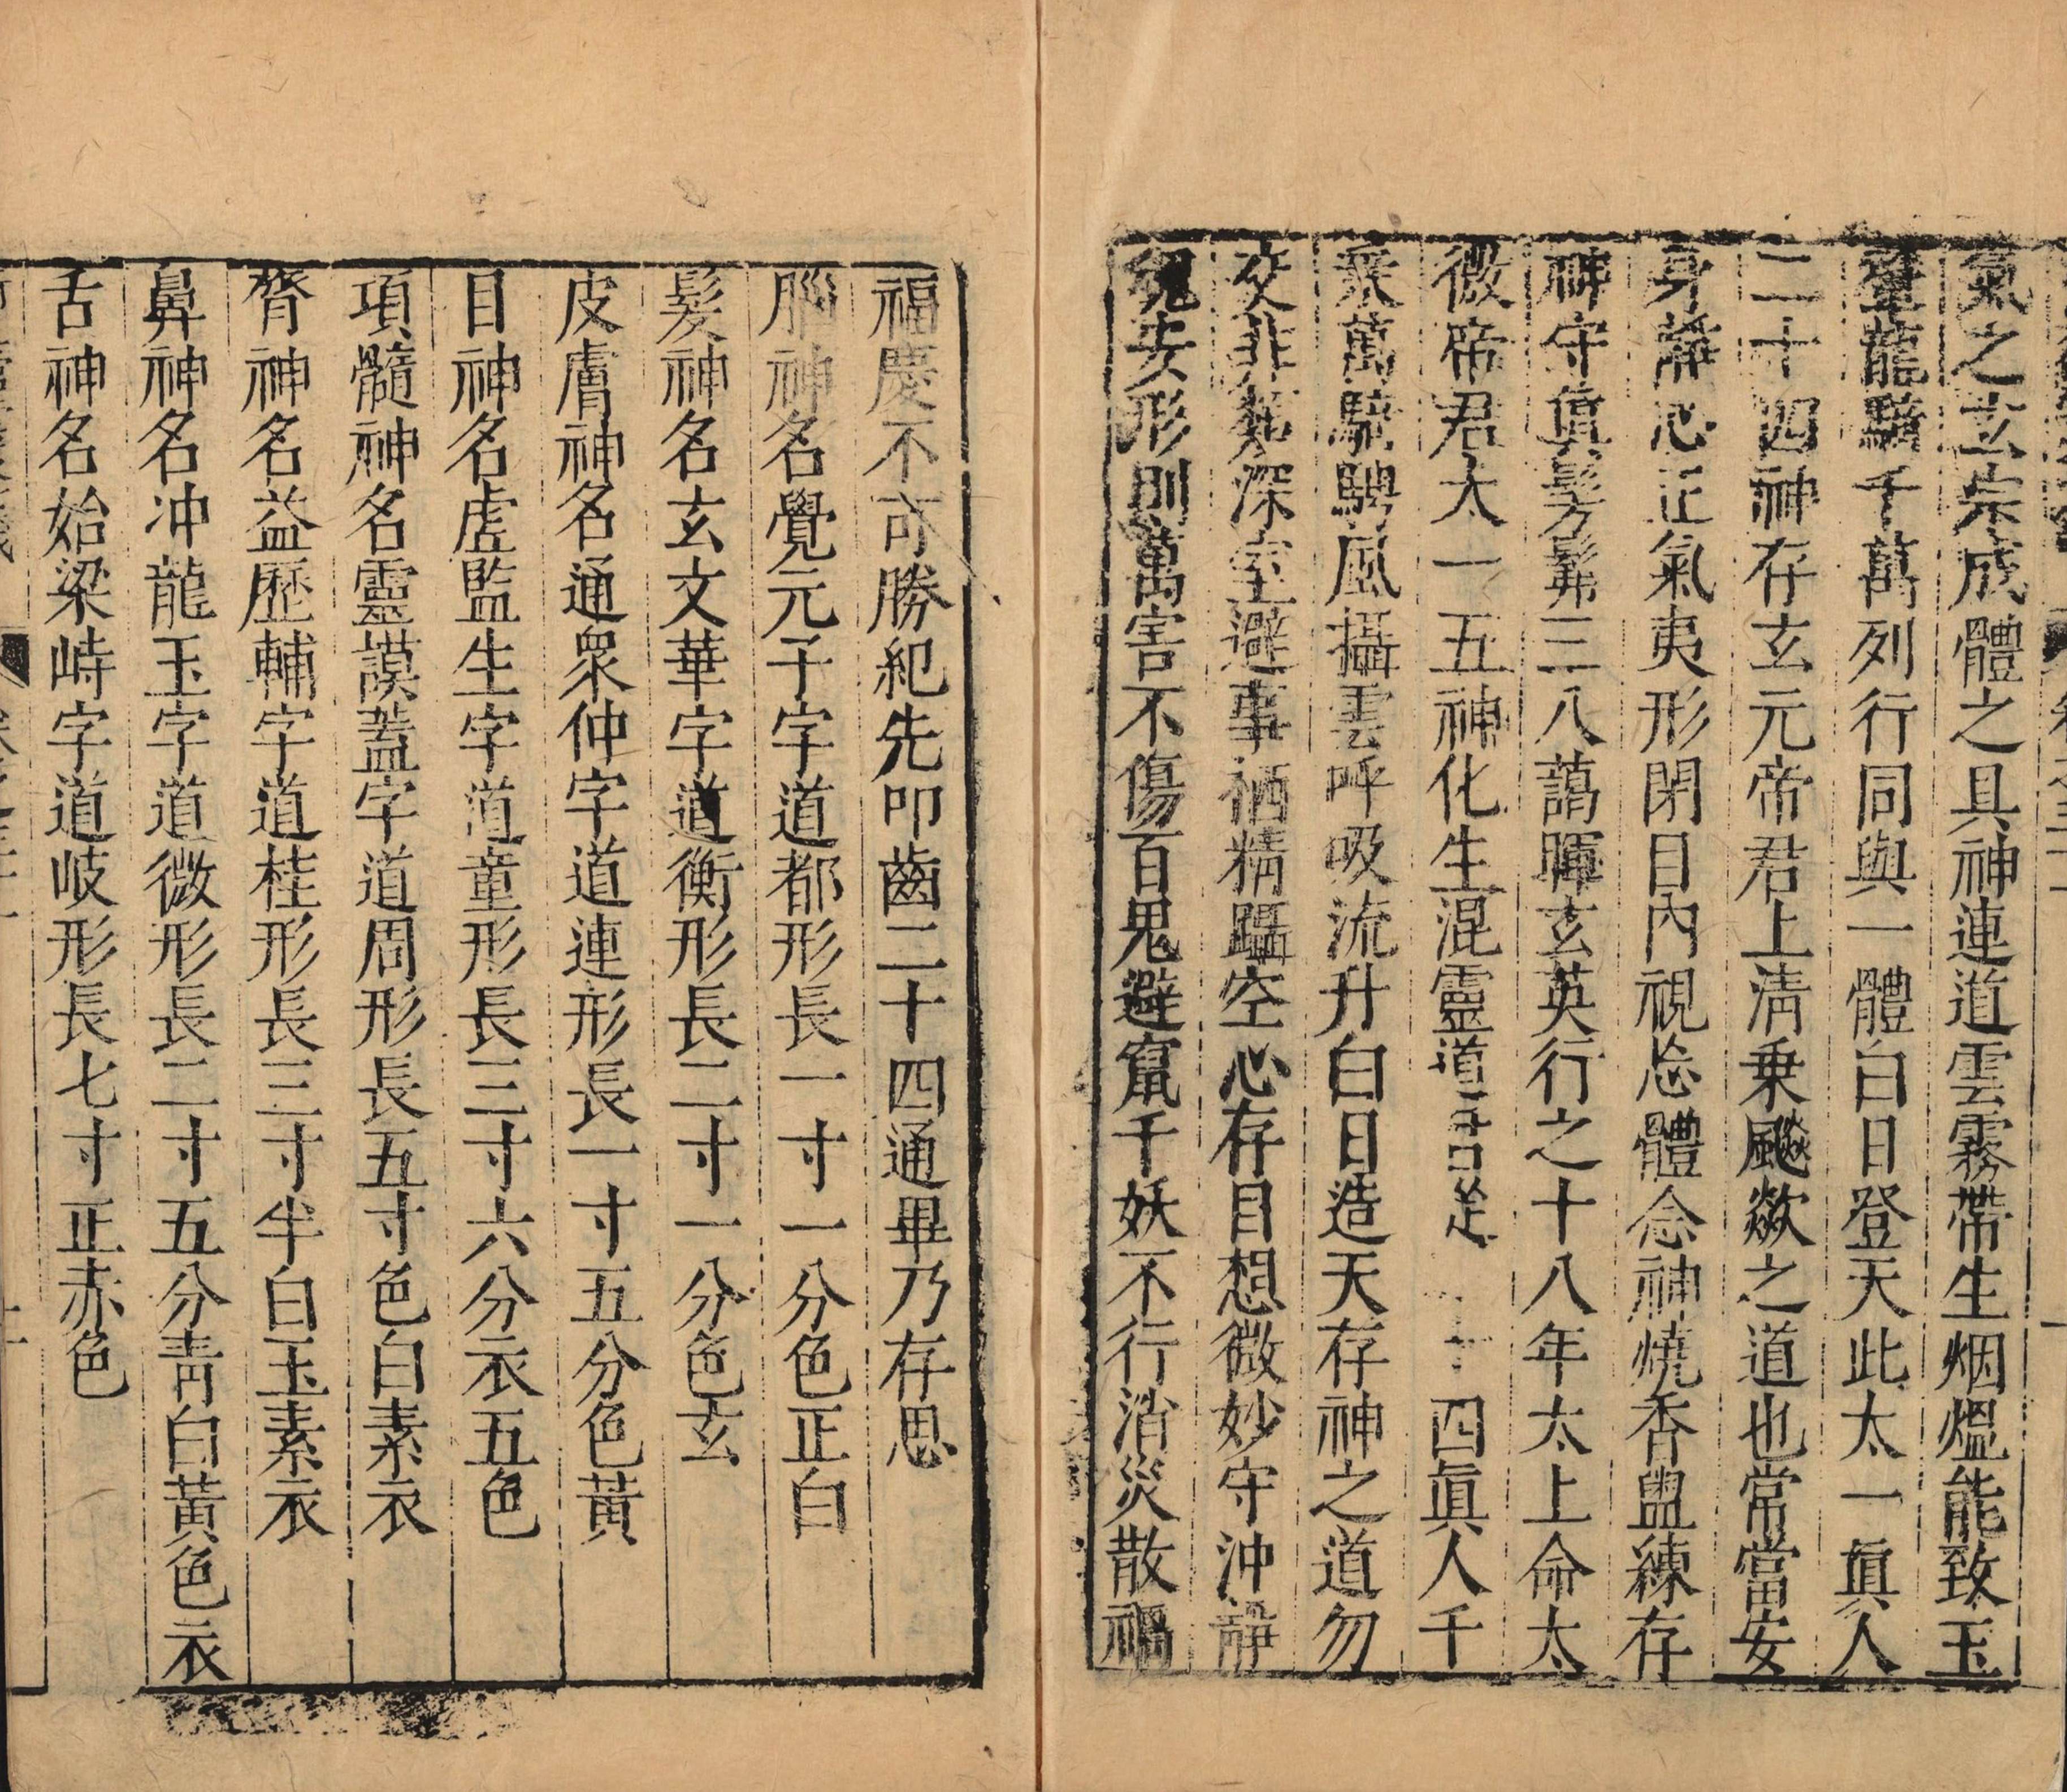 氣之玄宗成體之具神連道雲霧帶生烟熅能致玉
輦龍騎千萬列行同與一體白日登天此太一眞人
二十四神存玄元帝君上清乗飈歘之道也常當安
身靜心正氣夷形閉目內視忘體念神燒香盥練存
神守眞髣髴三八藹暉玄英行之十八年太上命太
微帝君太一五神化生混靈道君 四眞人千
乘萬騎騁風攝雲呼吸流升白日造天存神之道勿
交非類深室避事栖精躡空心存目想微妙守沖靜
魂安形則萬害不傷百鬼避竄千妖不行消災散禍
福慶不可勝紀先叩齒二十四通畢乃存思
腦神名覺元子字道都形長一寸一分色正白
髪神名玄文華字道衡形長二寸一分色玄
皮膚神名通衆仲字道連形長一寸五分色黃
目神名虛監生字道童形長三寸六分衣五色
項髓神名靈謨蓋字道周形長五寸色白素衣
膂神名益歷輔字道桂形長三寸半白玉素衣
鼻神名冲龍玉字道微形長二寸五分靑白黃色衣
舌神名始梁峙字道岐形長七寸正赤色